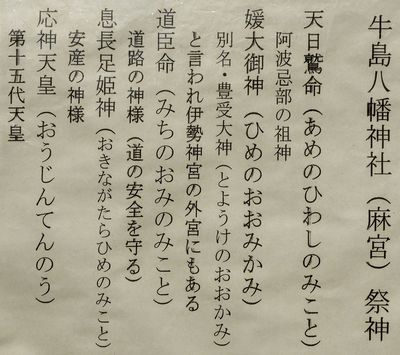 牛島八幡神社（麻宮）祭神
天日鷲命（あめのひわしのみこと）
阿波忌部の祖神
媛大御神（ひめのおおみかみ）
別名・豊受大神（とようけのおおかみ）
と言われ伊勢神宮の外宮にもある
道臣命（みちのおみのみこと）
道路の神様（道の安全を守る）
息長足姫神（おきながたらひめのみこと）
安産の神様
応神天皇（おうじんてんのう）
第十五代天皇